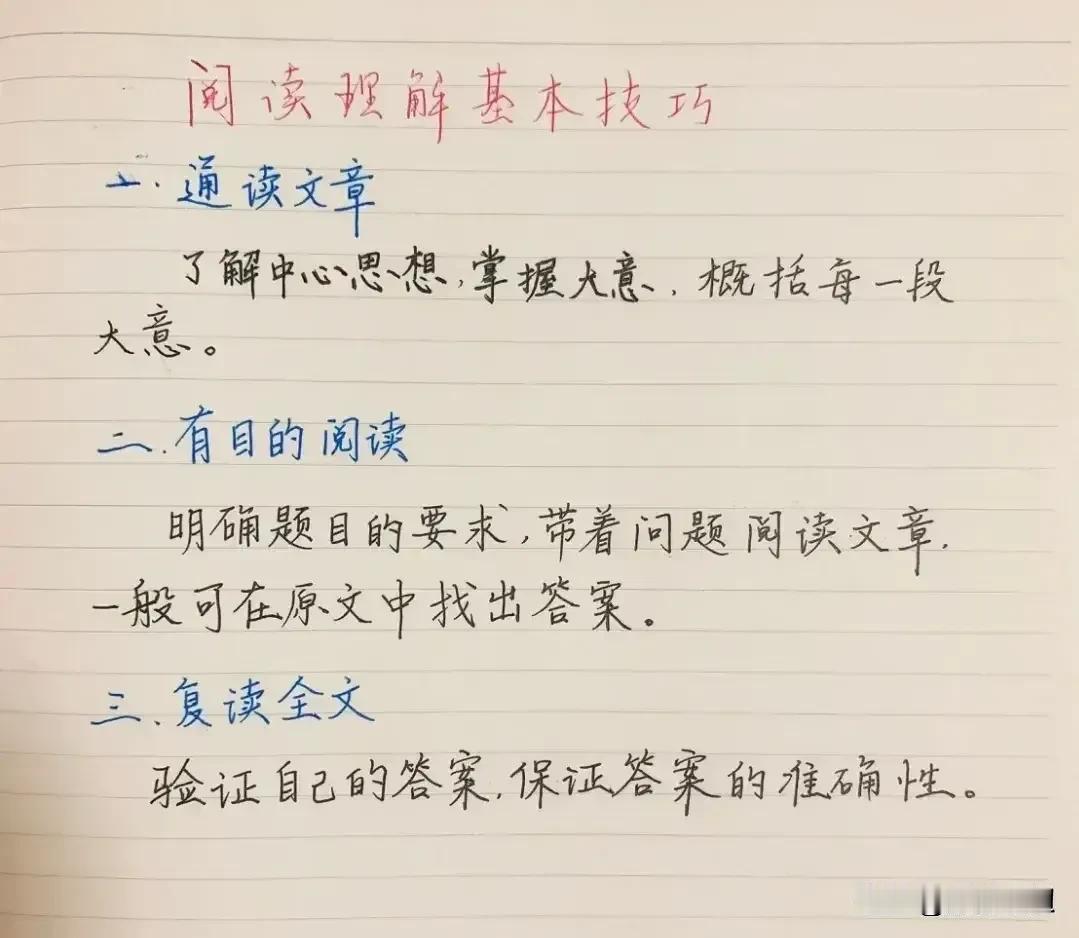 阅读理解基本技巧
一.通读文章
了解中心思想,掌握大意.概括每一段
大意。
二.有目的阅读
明确题目的要求,带着问题阅读文章.
一般可在原文中找出答案。
三.复读全文
验证自己的答案.保证答案的准确性。